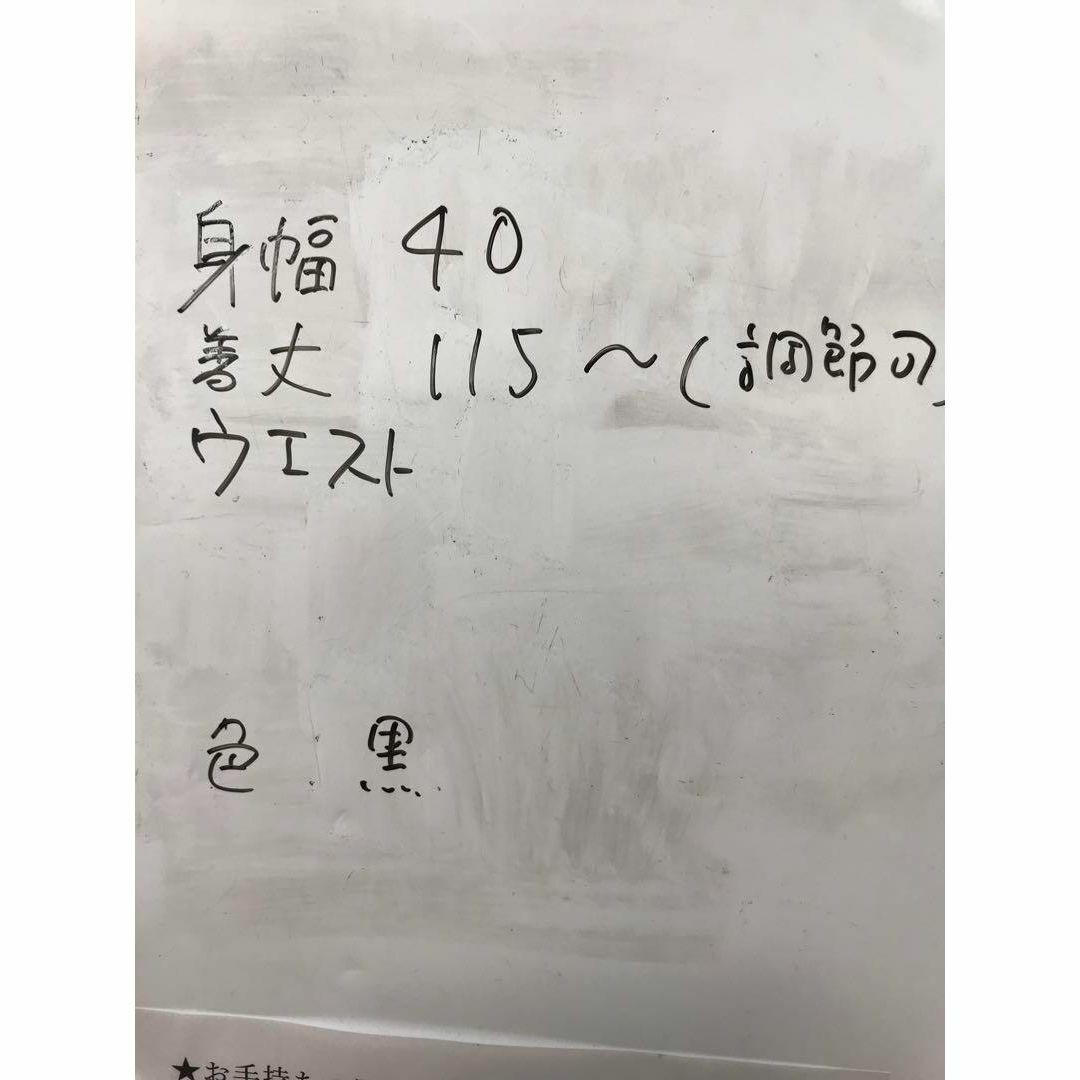 身幅 40
着丈 115~(調節可)
ウエスト
色 黒
★お手持ち